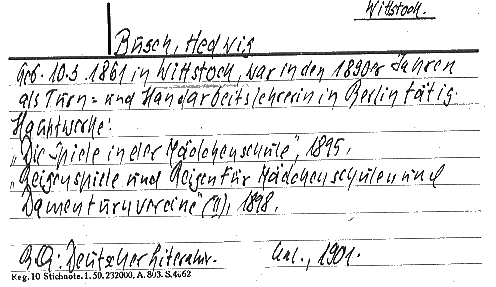 Wittstock.
Busch, Hedwig
Geb. 10.5.1861 in Wittstock, war in den 1890er Jahren
als Turn- und Handarbeitslehrerin in Berlin tätig.
Hauptwerke:
„Die Spiele in der Mädchenschule", 1895.
„Reigenspiele und Reigen für Mädchenschulen und
Damenturnvereine" (II), 1898.
Deutscher Literatur. Kal., 1901.
Keg. 10 Stichnote. 1. 50. 232000. A. 803. S. 4062